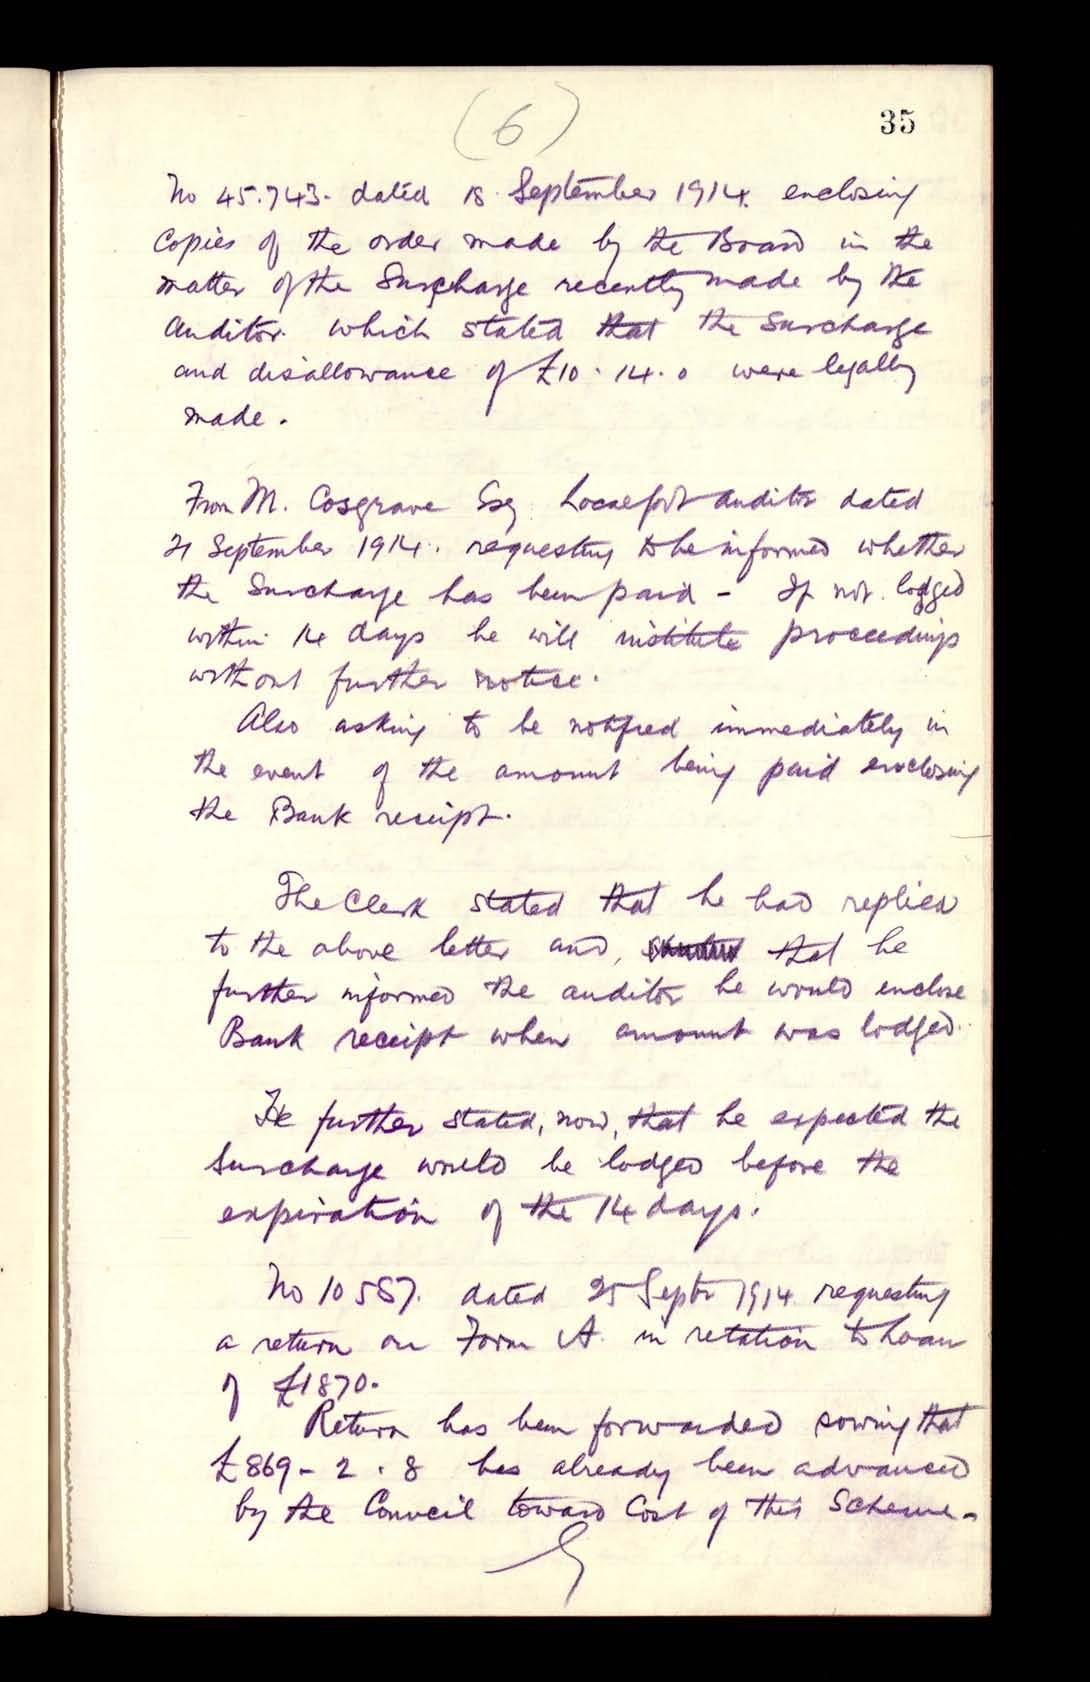 (6)
35
No 45.743. dated 18 September 1914. enclosing
Copies of the order made by the Board in the
matter of the Surcharge recently made by the
Auditor. which stated that the Surcharge
and disallowance of £10.14.0 were legally
made.
From M. Cosgrave Esq Local Govt Auditor dated
21 September 1914. requesting to be informed whether
the Surcharge has been paid - If not lodged
within 14 days he will institute proceedings
without further notice.
Also asking to be notified immediately in
the event of the amount being paid enclosing
the Bank receipt.
The Clerk stated that he had replied
to the above letter and, that he
further informed the auditor he would enclose
Bank receipt when amount was lodged.
He further stated, now, that he expected the
Surcharge would be lodged before the
expiration of the 14 days.
No 10587. dated 25 Septr 1914 requesting
a return on Form A. in relation to Loan
of £1870.
Return has been forwarded sowing that
£869-2.8 has already been advanced
by the Council toward Cost of this Scheme.